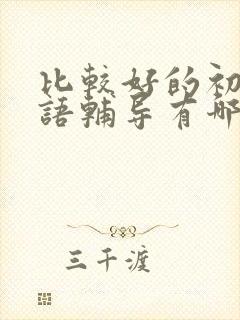 比較好的初
語輔导有哪
三千渡